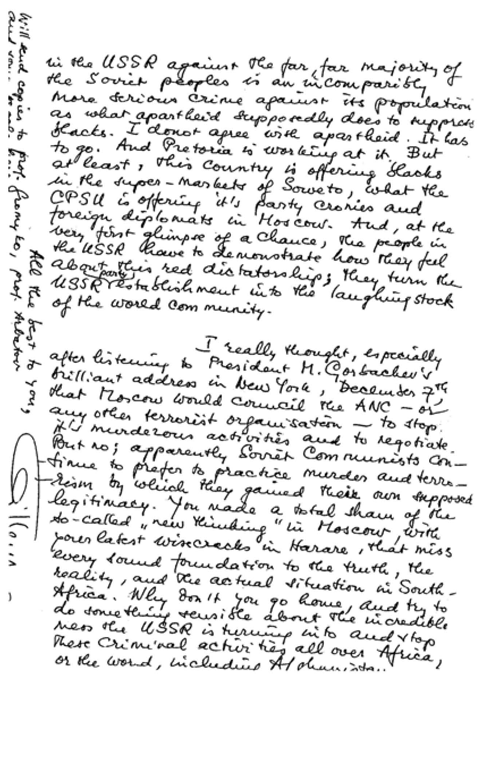 in the USSR against the far, far majority of
the Soviet peoples is an incomparibly
more serious crime against its population
as what apartheid supposedly does to suppress
blacks. I donot agree with apartheid. It has
to go. And Pretoria is working at it. But
at least, this country is offering blacks
in the super-markets of Soweto, what the
CPSU is offering it's party cronies and
foreign diplomats in Moscow. And, at the
very first glimpse of a chance, the people in
the USSR have to demonstrate how they feel
about this red dictatorship; they turn the
USSR party establishment into the laughing stock
of the world community.
I really thought, especially
after listening to President M. Gorbachev's
brilliant address in New York, December 7th,
that Moscow would council the ANC – or
any other terrorist organisation – to stop
it's murderous activities and to negotiate.
But no; apparently Soviet Communists con-
tinue to prefer to practice murder and terro-
rism by which they gained their own supposed
legitimacy. You made a total sham of the
so-called „new thinking" in Moscow, with
your latest wisecracks in Harare, that miss
every sound foundation to the truth, the
reality, and the actual situation in South-
Africa. Why don't you go home, and try to
do something sensible about the incredible
mess the USSR is turning into and stop
these criminal activities all over Africa,
or the world, including
All the best to you,
Will send copies to prof. Gromyko, prof. Arbatov
and